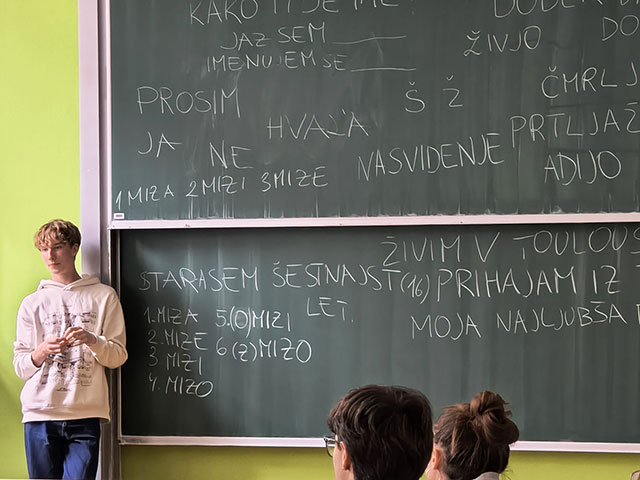 KAKO TI JE IME?
JAZ SEM
IMENUJEM SE
ŽIVJO
PROSIM
Š Ž
ČMRLJ
JA NE
HVALA
NASVIDENJE
PRTLJAŽ
ADIJO
1 MIZA 2 MIZI 3 MIZE
ŽIVIM V TOULOUS
STARA SEM ŠESTNAJST (16) PRIHAJAM IZ
LET.
MOJA NAJLJUBŠA
1. MIZA 5.(O) MIZI
2. MIZE 6 (Z) MIZO
3 MIZI
4. MIZO